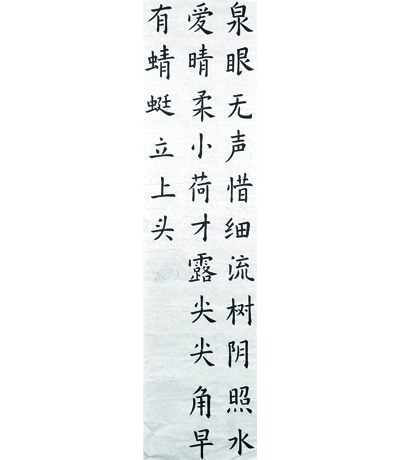 泉眼无声惜细流树阴照水
爱晴柔小荷才露尖尖角早
有蜻蜓立上头